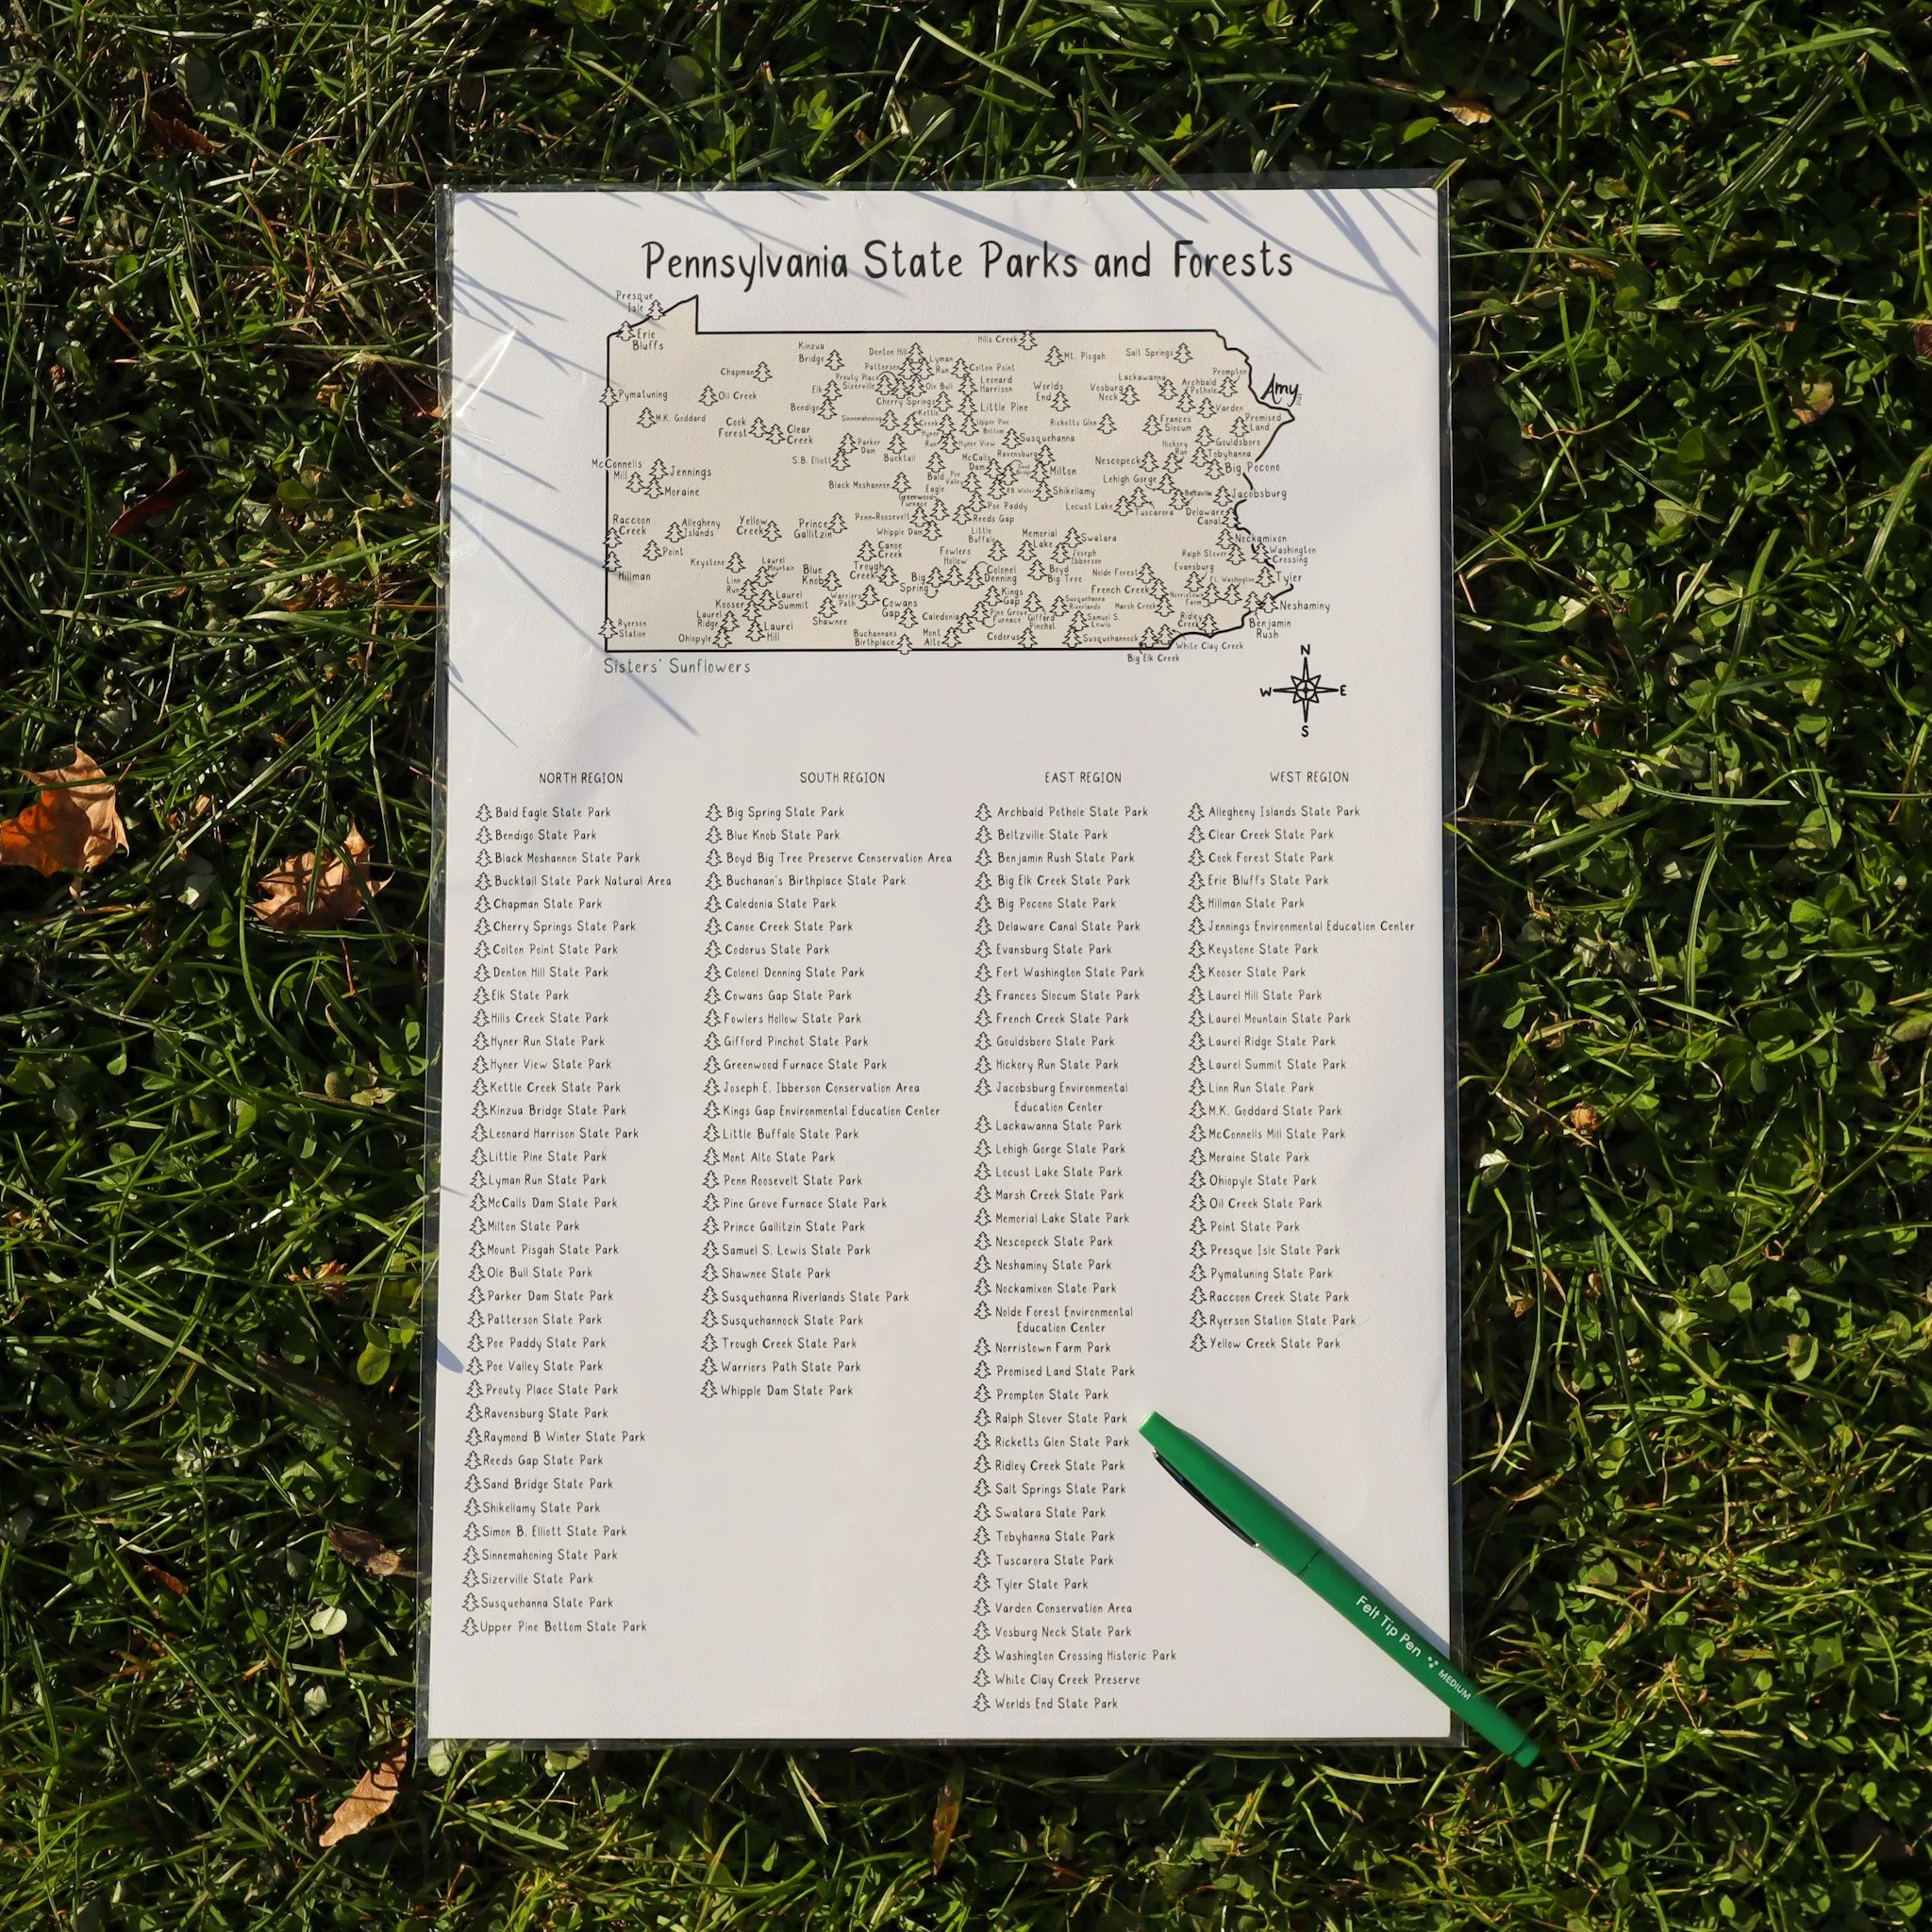 Pennsylvania State Parks and Forests
Presque
Isle
Erie
Bluffs
Hills Creek
Kinzua
Bridge
Denton Hill
Lyman
Run
Mt. Pisgah
Salt Springs
Chapman
Patterson
Colton Point
Prouty Place
Sizerville
Ole Bull
Leonard
Harrison
Worlds
End
Vosburg
Neck
Lackawanna
Archbald
Pothole
Prompton
Amy
Pymatuning
Oil Creek
Elk
Bendigo
Cherry Springs
Little Pine
Varden
M.K. Goddard
Cook
Forest
Clear
Creek
Sinnemahoning
Kettle
Creek
Upper Pine
Bottom
Ricketts Glen
Frances
Slocum
Promised
Land
Parker
Dam
Hyner
Run
Hyner View
Susquehanna
Gouldsboro
S.B. Elliott
Bucktail
McCalls
Dam
Ravensburg
Hickory
Run
Tobyhanna
McConnells
Mill
Jennings
Moraine
Bald
Eagle
Poe
Valley
Milton
Nescopeck
Big Pocono
Black Moshannon
R.B. Winter
Shikellamy
Lehigh Gorge
Beltzville
Jacobsburg
Greenwood
Furnace
Poe Paddy
Locust Lake
Tuscarora
Delaware
Canal
Raccoon
Creek
Allegheny
Islands
Yellow
Creek
Prince
Gallitzin
Penn-Roosevelt
Reeds Gap
Whipple Dam
Little
Buffalo
Memorial
Lake
Swatara
Nockamixon
Point
Canoe
Creek
Fowlers
Hollow
Joseph
Ibberson
Ralph Stover
Washington
Crossing
Hillman
Keystone
Laurel
Mountain
Blue
Knob
Trough
Creek
Big
Spring
Colonel
Denning
Boyd
Big Tree
Nolde Forest
Evansburg
Ft. Washington
Tyler
Linn
Run
Kooser
Laurel
Summit
Warriors
Path
Cowans
Gap
Kings
Gap
Susquehanna
Riverlands
French Creek
Marsh Creek
Norristown
Farm
Neshaminy
Laurel
Ridge
Shawnee
Caledonia
Pine Grove
Furnace
Gifford
Pinchot
Samuel S.
Lewis
Ridley
Creek
Benjamin
Rush
Ryerson
Station
Ohiopyle
Laurel
Hill
Buchannans
Birthplace
Mont
Alto
Codorus
Susquehannock
White Clay Creek
Big Elk Creek
Sisters' Sunflowers
N
W E
S
NORTH REGION
Bald Eagle State Park
Bendigo State Park
Black Moshannon State Park
Bucktail State Park Natural Area
Chapman State Park
Cherry Springs State Park
Colton Point State Park
Denton Hill State Park
Elk State Park
Hills Creek State Park
Hyner Run State Park
Hyner View State Park
Kettle Creek State Park
Kinzua Bridge State Park
Leonard Harrison State Park
Little Pine State Park
Lyman Run State Park
McCalls Dam State Park
Milton State Park
Mount Pisgah State Park
Ole Bull State Park
Parker Dam State Park
Patterson State Park
Poe Paddy State Park
Poe Valley State Park
Prouty Place State Park
Ravensburg State Park
Raymond B Winter State Park
Reeds Gap State Park
Sand Bridge State Park
Shikellamy State Park
Simon B. Elliott State Park
Sinnemahoning State Park
Sizerville State Park
Susquehanna State Park
Upper Pine Bottom State Park
SOUTH REGION
Big Spring State Park
Blue Knob State Park
Boyd Big Tree Preserve Conservation Area
Buchanan's Birthplace State Park
Caledonia State Park
Canoe Creek State Park
Codorus State Park
Colonel Denning State Park
Cowans Gap State Park
Fowlers Hollow State Park
Gifford Pinchot State Park
Greenwood Furnace State Park
Joseph E. Ibberson Conservation Area
Kings Gap Environmental Education Center
Little Buffalo State Park
Mont Alto State Park
Penn Roosevelt State Park
Pine Grove Furnace State Park
Prince Gallitzin State Park
Samuel S. Lewis State Park
Shawnee State Park
Susquehanna Riverlands State Park
Susquehannock State Park
Trough Creek State Park
Warriors Path State Park
Whipple Dam State Park
EAST REGION
Archbald Pothole State Park
Beltzville State Park
Benjamin Rush State Park
Big Elk Creek State Park
Big Pocono State Park
Delaware Canal State Park
Evansburg State Park
Fort Washington State Park
Frances Slocum State Park
French Creek State Park
Gouldsboro State Park
Hickory Run State Park
Jacobsburg Environmental
Education Center
Lackawanna State Park
Lehigh Gorge State Park
Locust Lake State Park
Marsh Creek State Park
Memorial Lake State Park
Nescopeck State Park
Neshaminy State Park
Nockamixon State Park
Nolde Forest Environmental
Education Center
Norristown Farm Park
Promised Land State Park
Prompton State Park
Ralph Stover State Park
Ricketts Glen State Park
Ridley Creek State Park
Salt Springs State Park
Swatara State Park
Tobyhanna State Park
Tuscarora State Park
Tyler State Park
Varden Conservation Area
Vosburg Neck State Park
Washington Crossing Historic Park
White Clay Creek Preserve
Worlds End State Park
WEST REGION
Allegheny Islands State Park
Clear Creek State Park
Cook Forest State Park
Erie Bluffs State Park
Hillman State Park
Jennings Environmental Education Center
Keystone State Park
Kooser State Park
Laurel Hill State Park
Laurel Mountain State Park
Laurel Ridge State Park
Laurel Summit State Park
Linn Run State Park
M.K. Goddard State Park
McConnells Mill State Park
Moraine State Park
Ohiopyle State Park
Oil Creek State Park
Point State Park
Presque Isle State Park
Pymatuning State Park
Raccoon Creek State Park
Ryerson Station State Park
Yellow Creek State Park
Felt Tip Pen MEDIUM